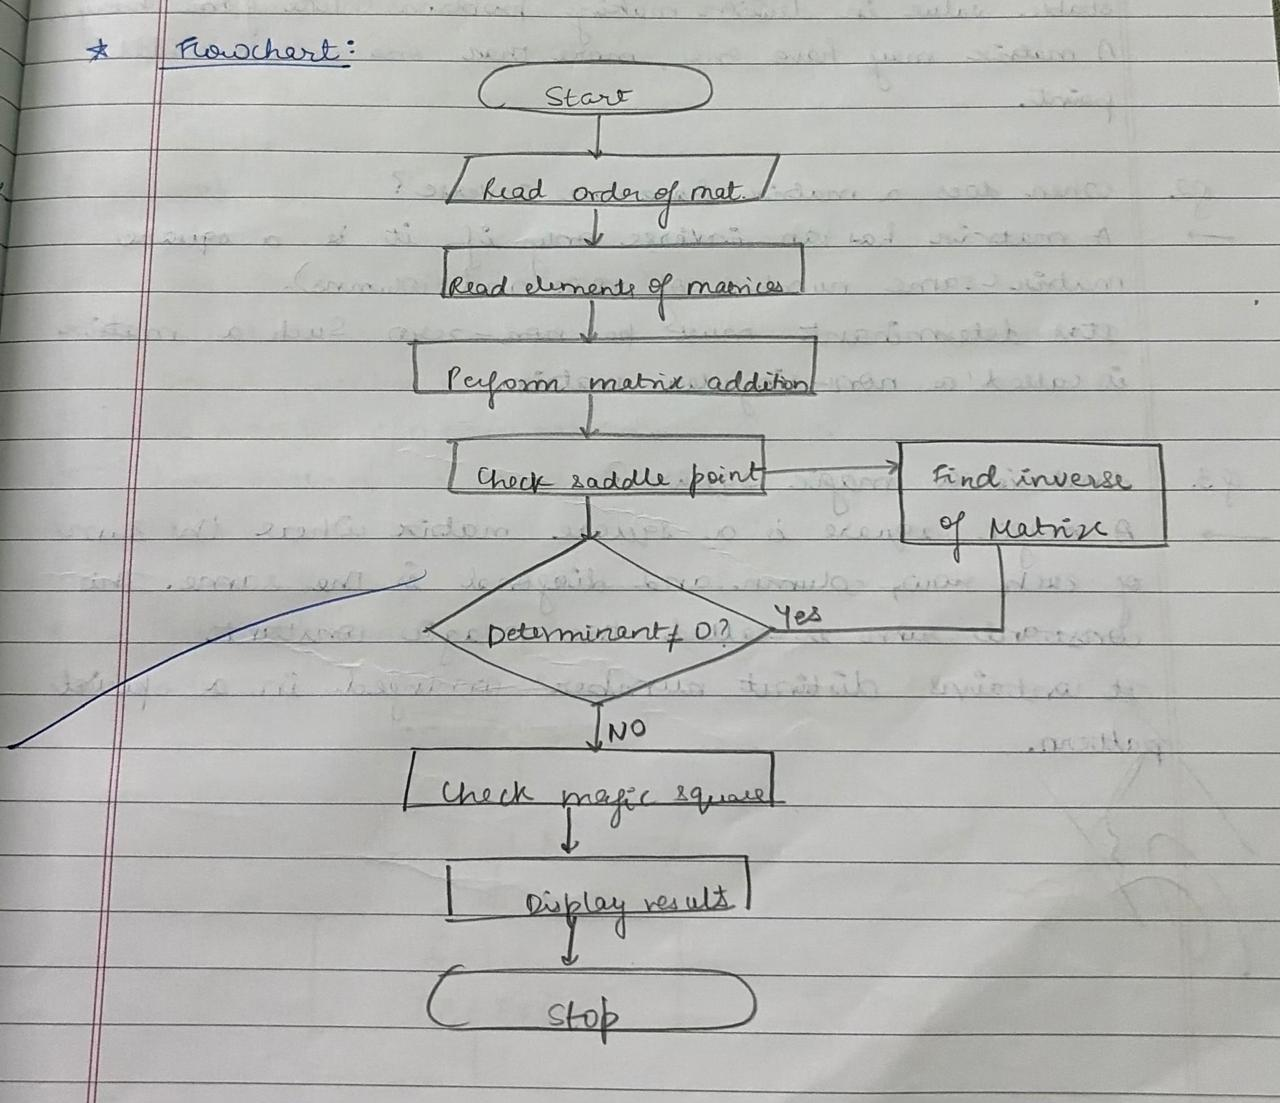 * Flowchart:
Start
Read order of mat.
Read elements of matrices
Perform matrix addition
Check saddle point
Find inverse
of Matrix
Determinant ≠ 0?
Yes
NO
Check magic square
Display result
Stop